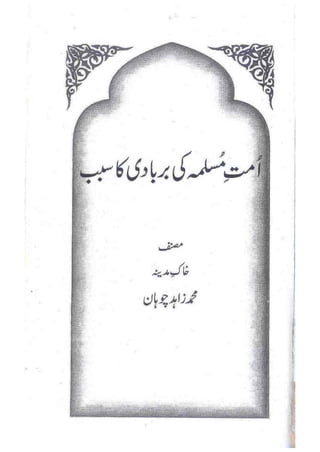 اُمتِ مُسلمہ کی بربادی کا سبب
مصنف
خاکِ مدینہ
محمد زاہد چوہان